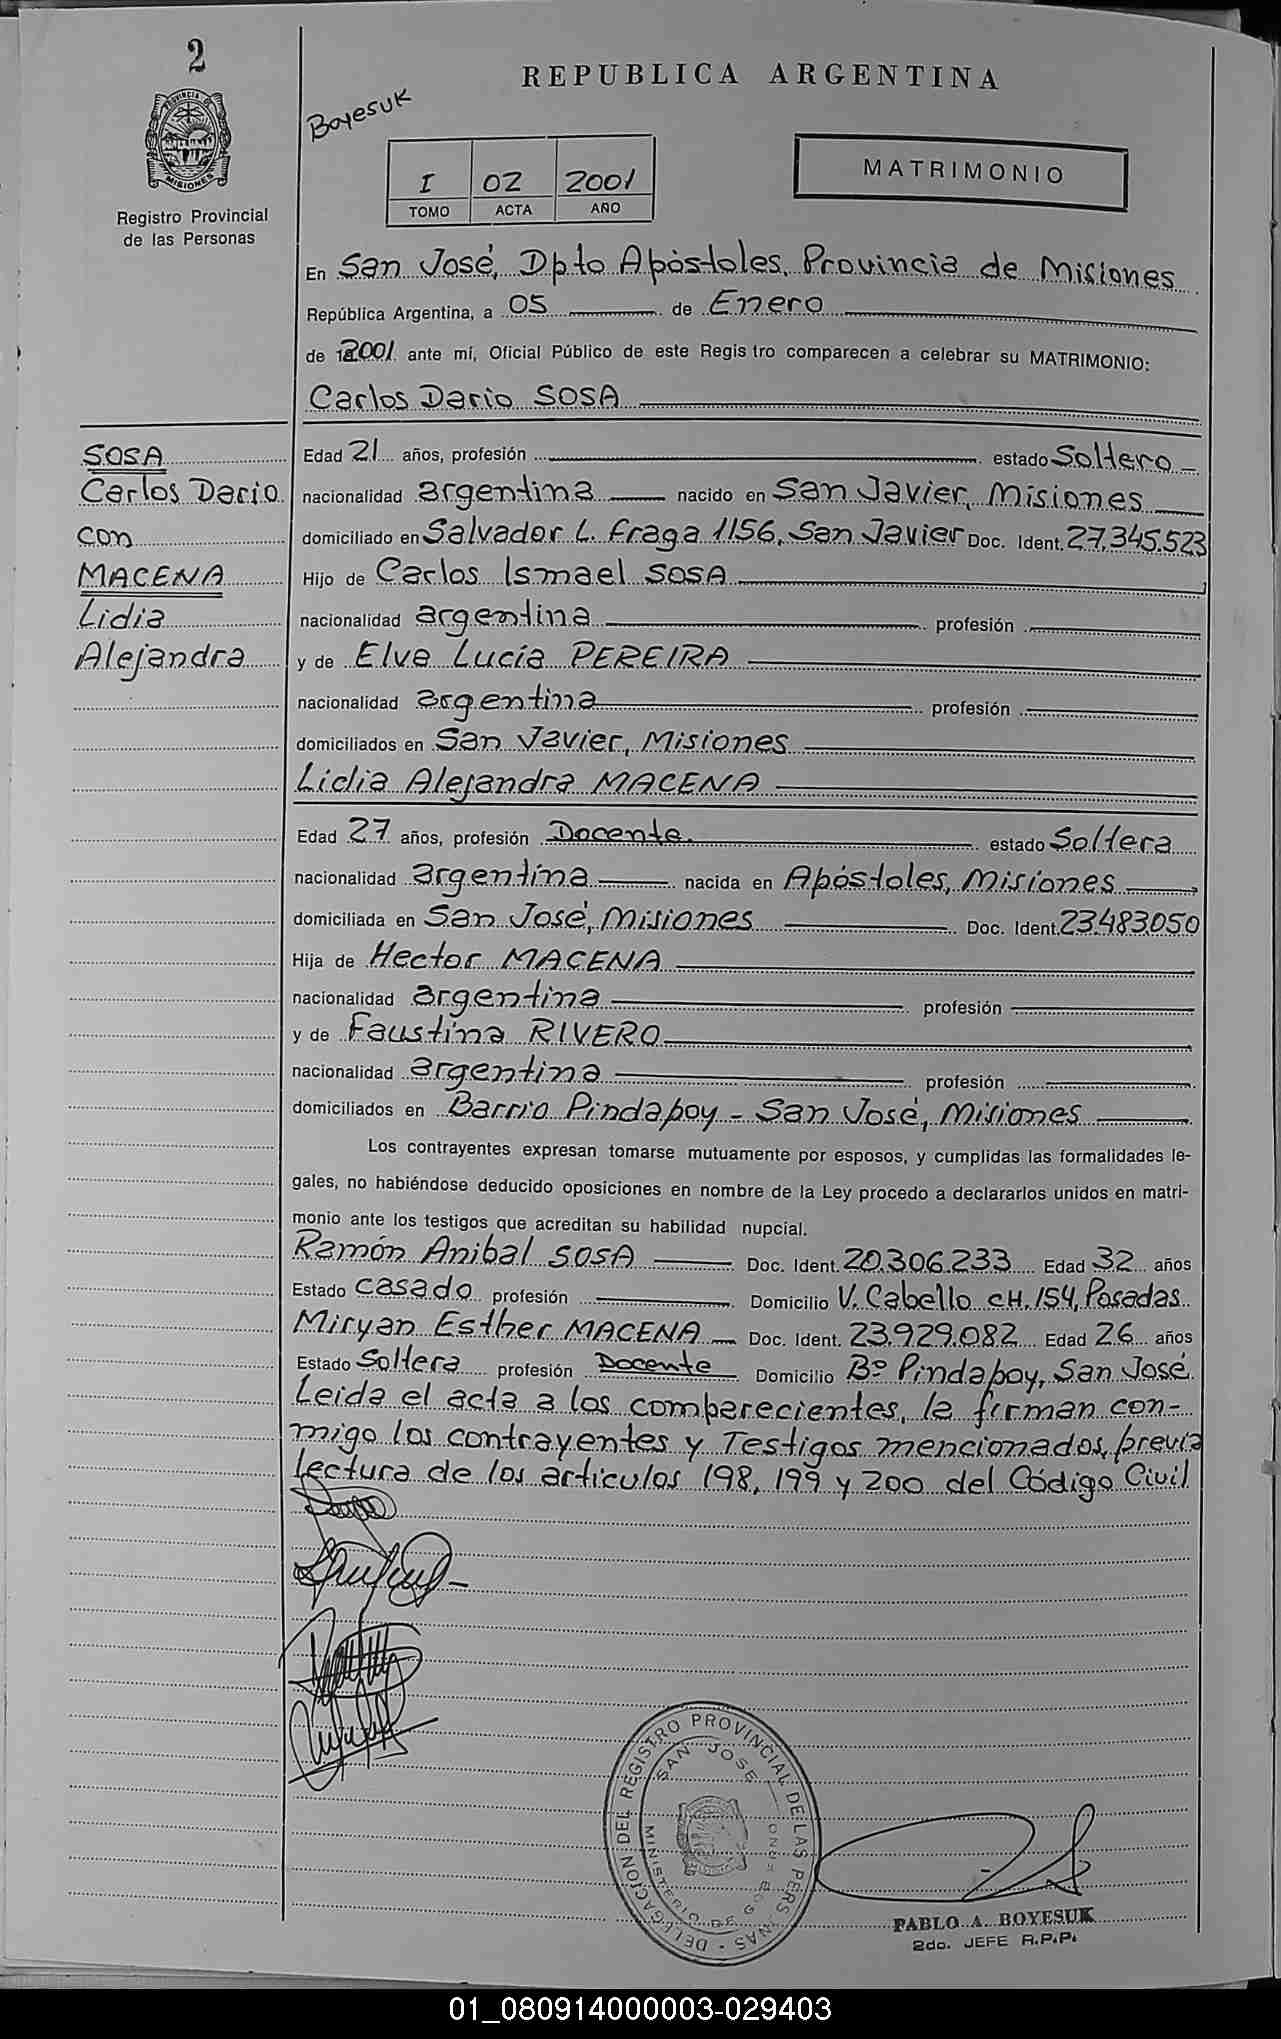 2
REPUBLICA ARGENTINA
Boyesuk
PROVINCIA DE
MISIONES
Registro Provincial
de las Personas
I 02 2001
TOMO ACTA AÑO
MATRIMONIO
En San José, Dpto Apóstoles, Provincia de Misiones
República Argentina, a 05 de Enero
de 2001 ante mí, Oficial Público de este Registro comparecen a celebrar su MATRIMONIO:
Carlos Dario SOSA
SOSA
Carlos Dario
con
MACENA
Lidia
Alejandra
Edad 21 años, profesión estado Soltero
nacionalidad argentina nacido en San Javier, Misiones
domiciliado en Salvador L. Fraga 1156, San Javier Doc. Ident. 27.345.523
Hijo de Carlos Ismael SOSA
nacionalidad argentina profesión
y de Elva Lucía PEREIRA
nacionalidad argentina profesión
domiciliados en San Javier, Misiones
Lidia Alejandra MACENA
Edad 27 años, profesión Docente. estado Soltera
nacionalidad argentina nacida en Apóstoles, Misiones
domiciliada en San José, Misiones Doc. Ident. 23.483.050
Hija de Hector MACENA
nacionalidad argentina profesión
y de Faustina RIVERO
nacionalidad argentina profesión
domiciliados en Barrio Pindapoy - San José, Misiones
Los contrayentes expresan tomarse mutuamente por esposos, y cumplidas las formalidades le-
gales, no habiéndose deducido oposiciones en nombre de la Ley procedo a declararlos unidos en matri-
monio ante los testigos que acreditan su habilidad nupcial.
Ramón Anibal SOSA Doc. Ident. 20.306.233 Edad 32 años
Estado casado profesión Domicilio V. Cabello CH. 154, Posadas
Miryan Esther MACENA Doc. Ident. 23.929.082 Edad 26 años
Estado Soltera profesión Docente Domicilio Bº Pindapoy, San José
Leida el acta a los comparecientes, la firman con-
migo los contrayentes y Testigos mencionados, previa
lectura de los articulos 198, 199 y 200 del Código Civil
DELEGACION DEL REGISTRO PROVINCIAL DE LAS PERSONAS
SAN JOSE
MINISTERIO DE GOBIERNO
PABLO A. BOYESUK
2do. JEFE R.P.P.
01_080914000003-029403